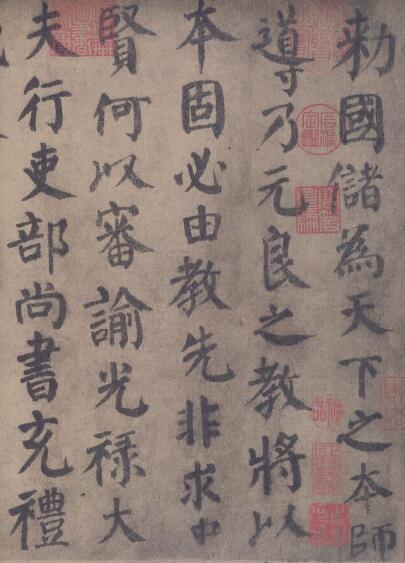 勑國儲為天下之本師
導乃元良之教將以
本固必由教先非求中
賢何以審諭光祿大
夫行吏部尚書充禮
神品